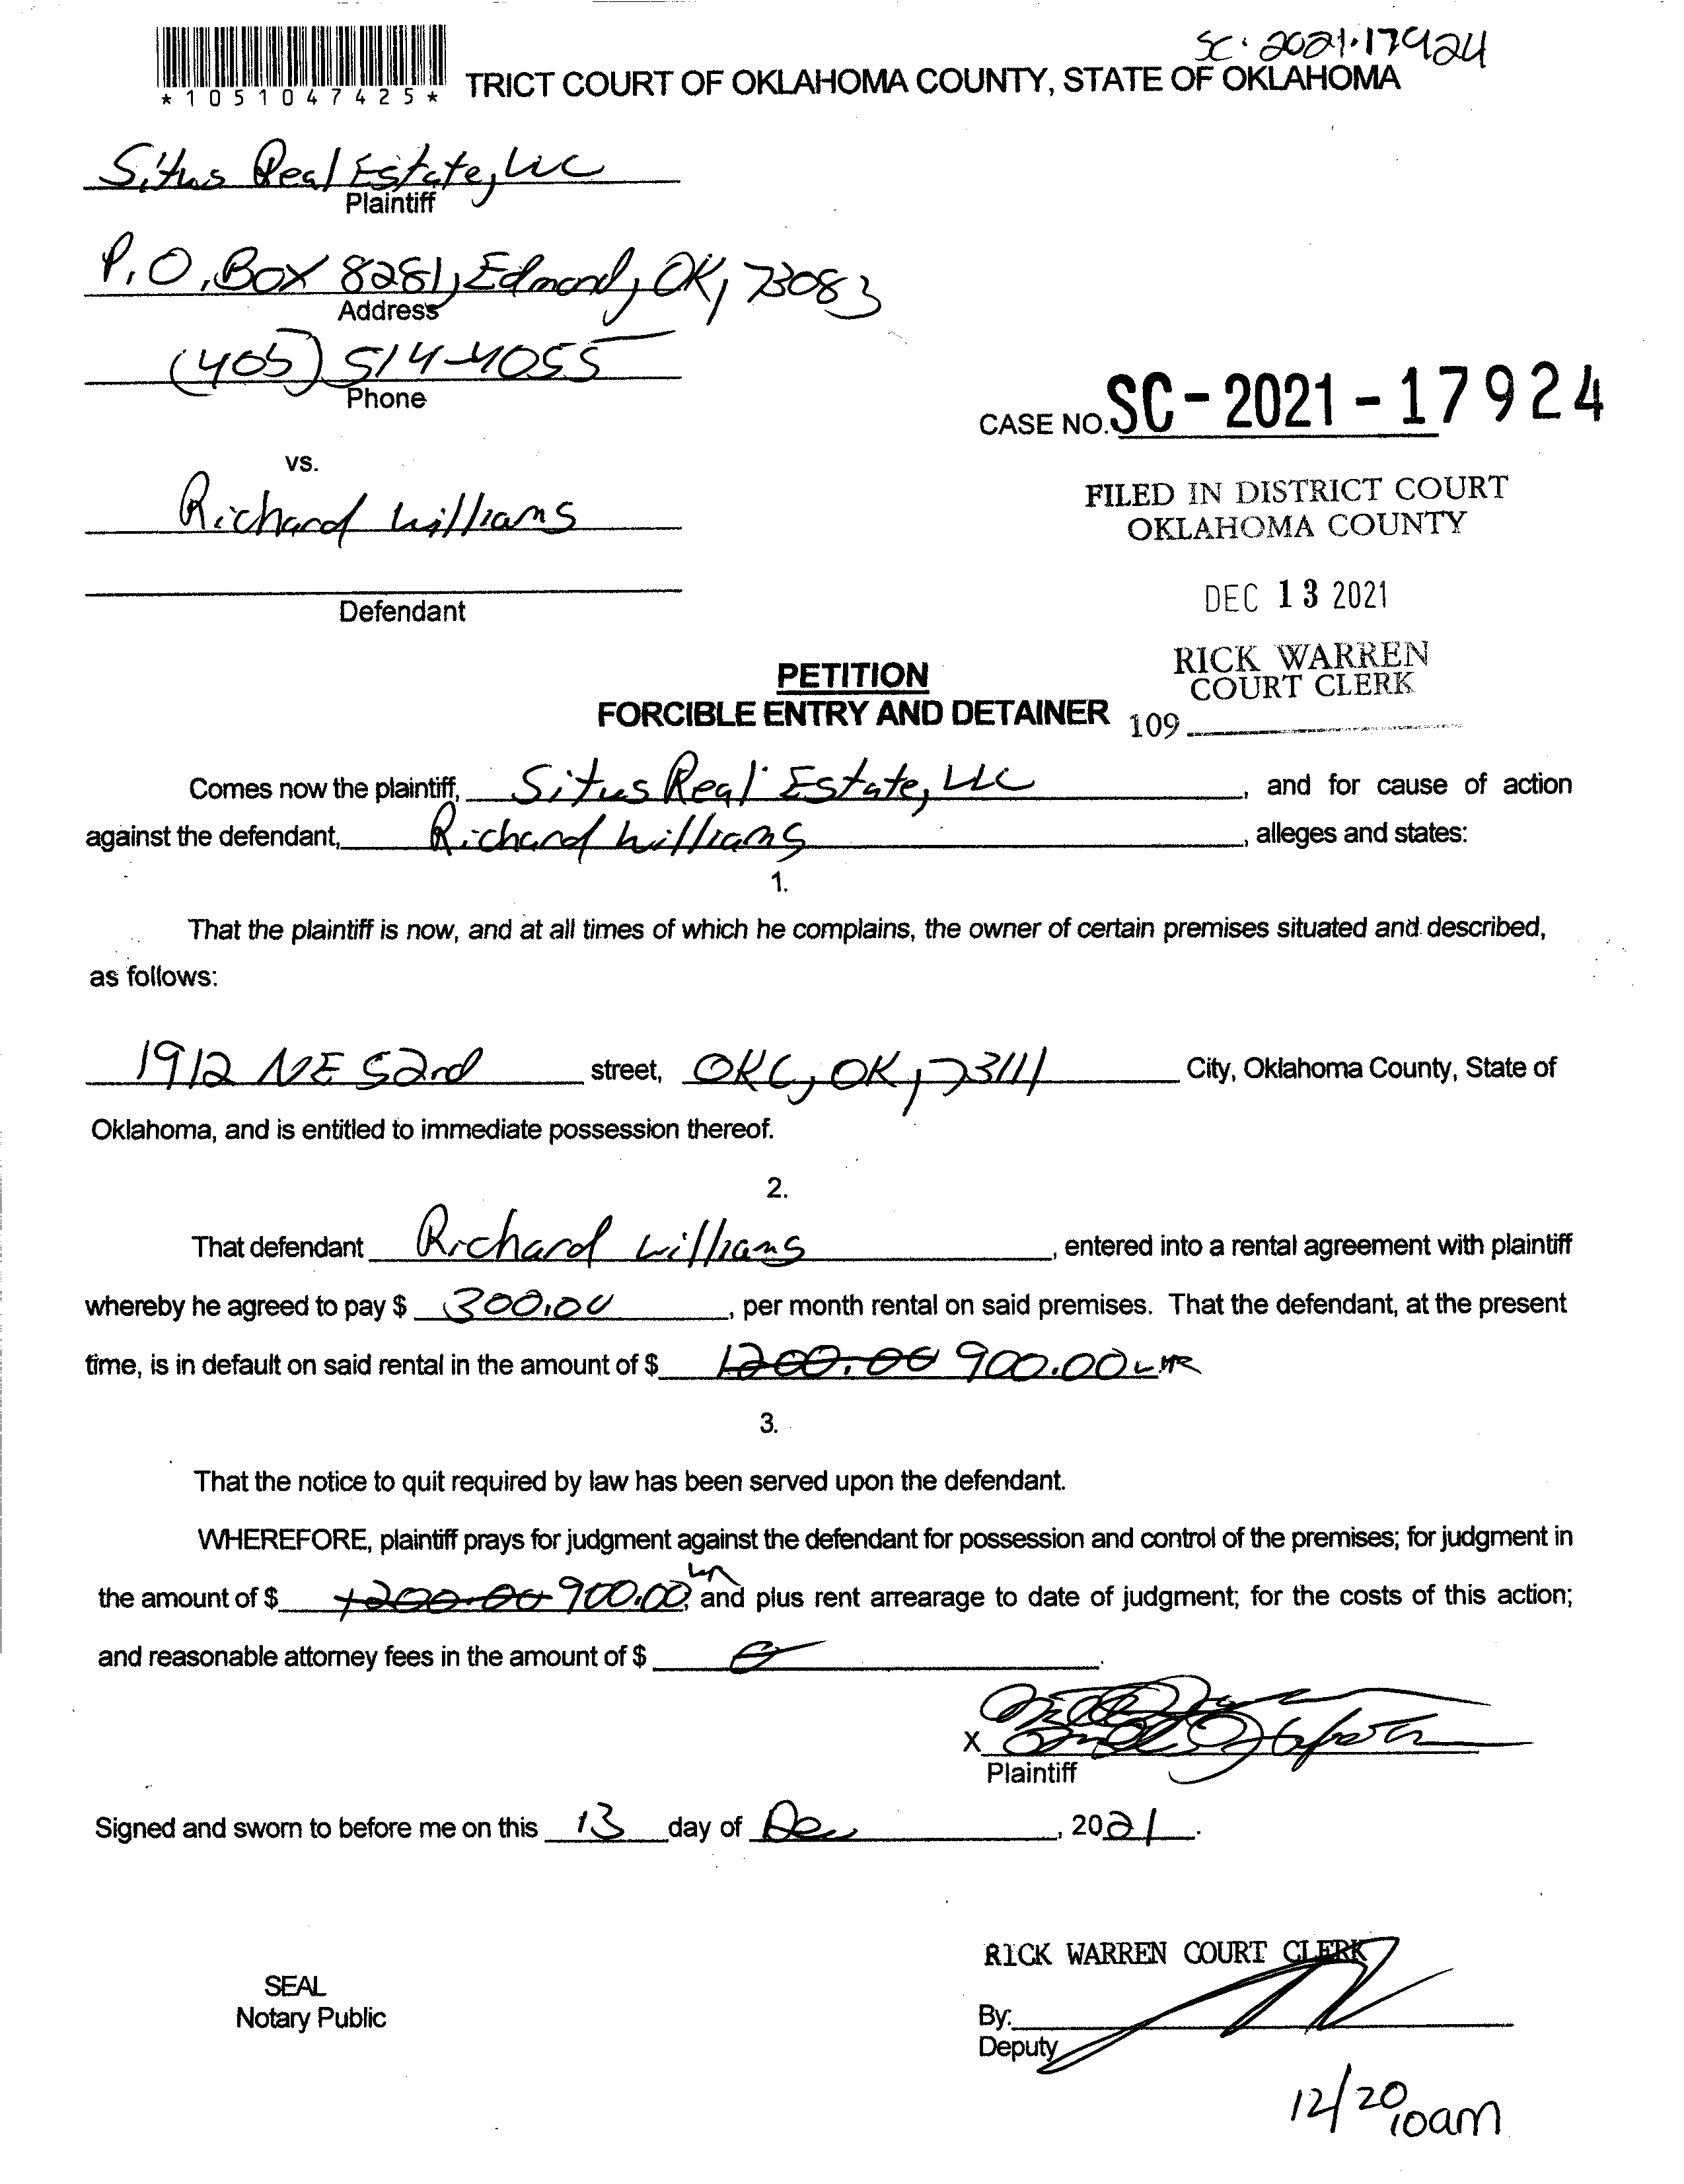 SC-2021-17924
*1051047425*
TRICT COURT OF OKLAHOMA COUNTY, STATE OF OKLAHOMA
Situs Real Estate, LLC
Plaintiff
P.O. Box 8281, Edmond, OK, 73083
Address
(405) 514-4055
Phone
CASE NO. SC-2021-17924
vs.
Richard Williams
FILED IN DISTRICT COURT
OKLAHOMA COUNTY
DEC 13 2021
Defendant
RICK WARREN
COURT CLERK
109
PETITION
FORCIBLE ENTRY AND DETAINER
Comes now the plaintiff, Situs Real Estate, LLC, and for cause of action
against the defendant, Richard Williams, alleges and states:
1.
That the plaintiff is now, and at all times of which he complains, the owner of certain premises situated and described,
as follows:
1912 NE 52rd street, OKC, OK, 73111 City, Oklahoma County, State of
Oklahoma, and is entitled to immediate possession thereof.
2.
That defendant Richard Williams, entered into a rental agreement with plaintiff
whereby he agreed to pay $ 300.00, per month rental on said premises. That the defendant, at the present
time, is in default on said rental in the amount of $ 1200.00 900.00
3.
That the notice to quit required by law has been served upon the defendant.
WHEREFORE, plaintiff prays for judgment against the defendant for possession and control of the premises; for judgment in
the amount of $ 1200.00 900.00, and plus rent arrearage to date of judgment; for the costs of this action;
and reasonable attorney fees in the amount of $
X
Plaintiff
Signed and sworn to before me on this 13 day of Dec, 2021.
RICK WARREN COURT CLERK
SEAL
Notary Public
By:
Deputy
12/20 10am